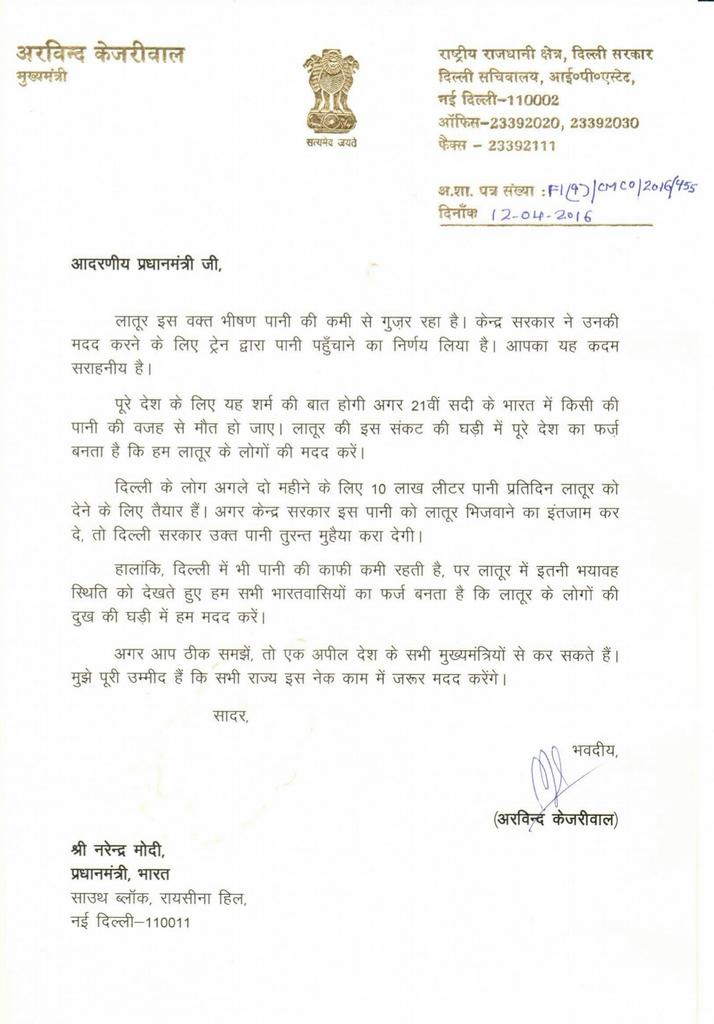 अरविन्द केजरीवाल
मुख्यमंत्री
सत्यमेव जयते
राष्ट्रीय राजधानी क्षेत्र, दिल्ली सरकार
दिल्ली सचिवालय, आई०पी०एस्टेट,
नई दिल्ली-110002
ऑफिस-23392020, 23392030
फैक्स - 23392111
अ.शा. पत्र संख्या : F1(9)/CMCO/2016/455
दिनाँक 12-04-2016
आदरणीय प्रधानमंत्री जी,
लातूर इस वक्त भीषण पानी की कमी से गुज़र रहा है। केन्द्र सरकार ने उनकी
मदद करने के लिए ट्रेन द्वारा पानी पहुँचाने का निर्णय लिया है। आपका यह कदम
सराहनीय है।
पूरे देश के लिए यह शर्म की बात होगी अगर 21वीं सदी के भारत में किसी की
पानी की वजह से मौत हो जाए। लातूर की इस संकट की घड़ी में पूरे देश का फर्ज़
बनता है कि हम लातूर के लोगों की मदद करें।
दिल्ली के लोग अगले दो महीने के लिए 10 लाख लीटर पानी प्रतिदिन लातूर को
देने के लिए तैयार हैं। अगर केन्द्र सरकार इस पानी को लातूर भिजवाने का इंतजाम कर
दे, तो दिल्ली सरकार उक्त पानी तुरन्त मुहैया करा देगी।
हालांकि, दिल्ली में भी पानी की काफी कमी रहती है, पर लातूर में इतनी भयावह
स्थिति को देखते हुए हम सभी भारतवासियों का फर्ज बनता है कि लातूर के लोगों की
दुख की घड़ी में हम मदद करें।
अगर आप ठीक समझें, तो एक अपील देश के सभी मुख्यमंत्रियों से कर सकते हैं।
मुझे पूरी उम्मीद हैं कि सभी राज्य इस नेक काम में जरूर मदद करेंगे।
सादर,
भवदीय,
(अरविन्द केजरीवाल)
श्री नरेन्द्र मोदी,
प्रधानमंत्री, भारत
साउथ ब्लॉक, रायसीना हिल,
नई दिल्ली-110011